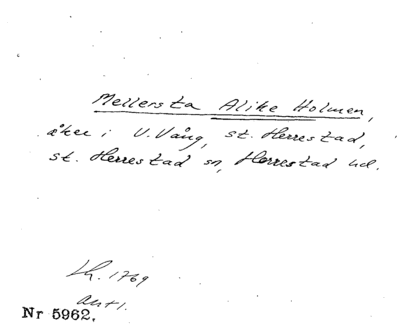 Mellersta Alike Holmen,
åker i V. Vång, St. Herrestad,
St. Herrestad sn, Herrestad hd.
Lh. 1769
akt 1.
Nr 5962.